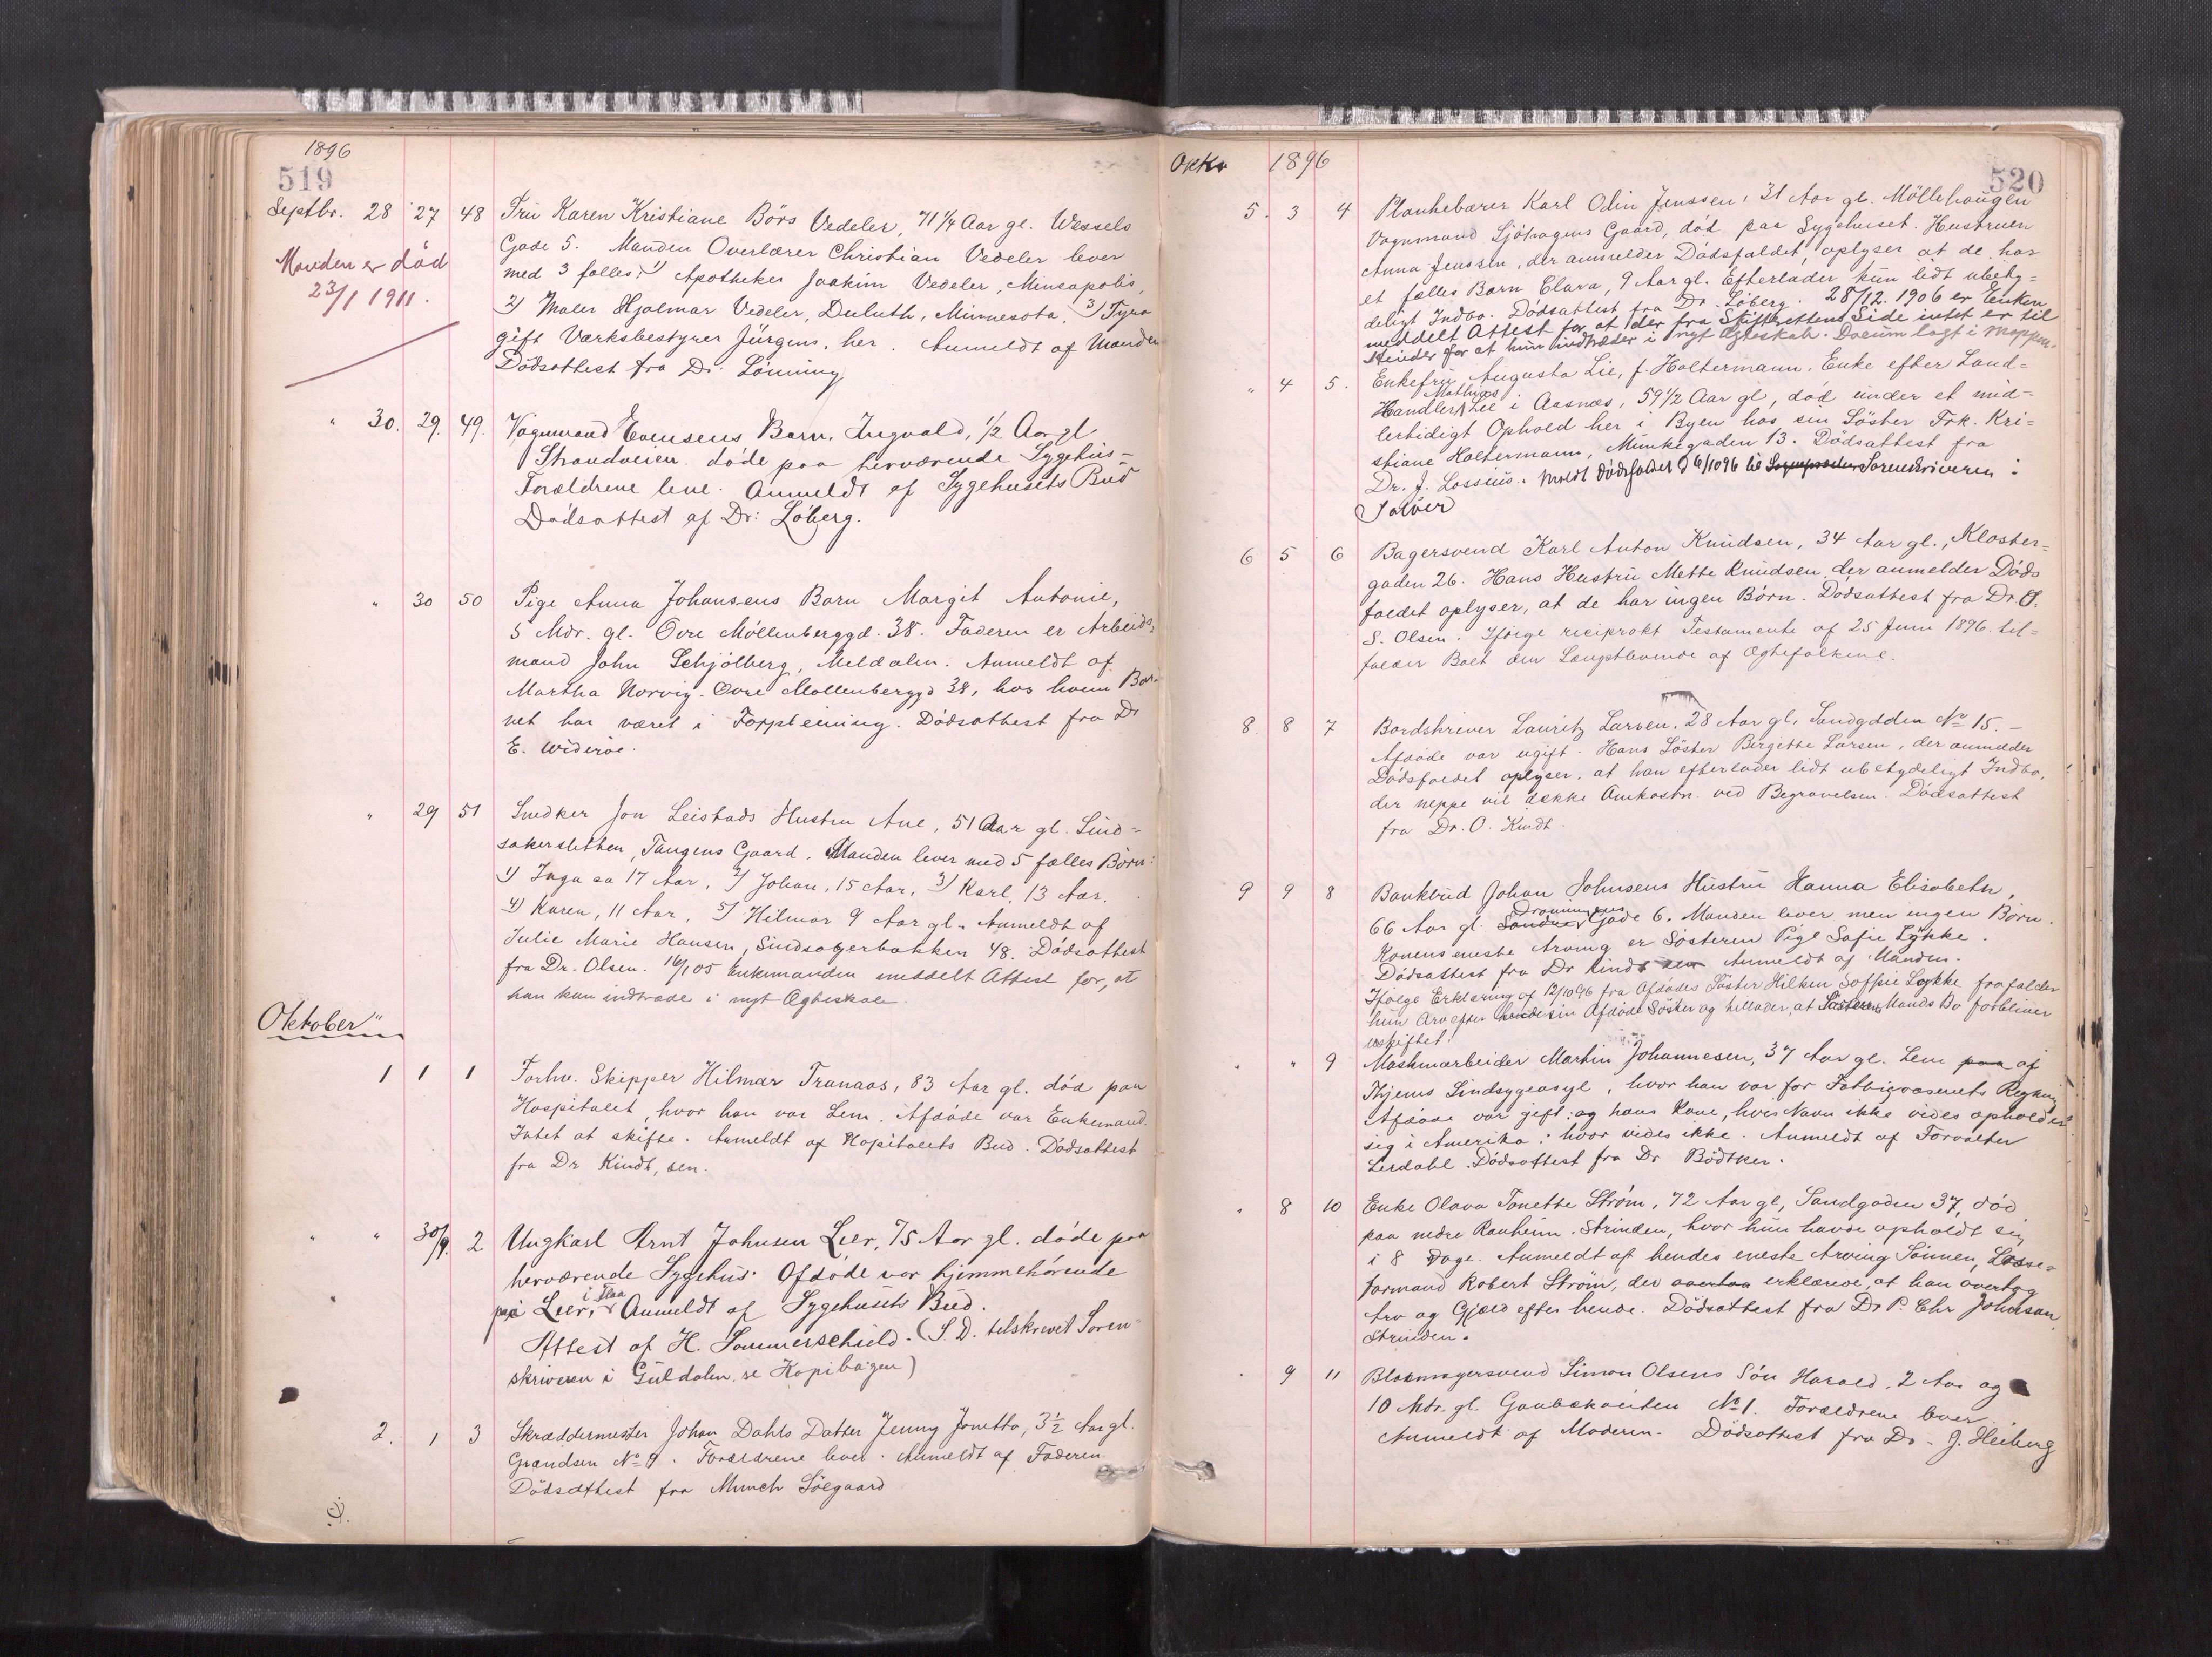 1896
519
Septbr. 28 27 48 Fru Karen Kristiane Börs Vedeler, 71 1/4 Aar gl. Wessels
Gade 5. Manden Overlærer Christian Vedeler lever
med 3 fælles: 1) Apotheker Joakim Vedeler, Mineapolis,
2) Maler Hjalmar Vedeler, Duluth, Minnesota, 3) Tyra
gift Værksbestyrer Jürgens, her. Anmeldt af Manden
Dödsattest fra Dr. Lönning
Manden er död
23/1 1911.
" 30. 29. 49. Vognmand Evensens Barn, Ingvald, 1/2 Aar gl
Strandveien döde paa herværende Sygehus-
Forældrene leve. Anmeldt af Sygehusets Bud
Dødsattest af Dr: Löberg.
" 30 50 Pige Anna Johansens Barn Margit Antonie,
5 Mdr. gl. Övre Möllenberggd. 38. Faderen er Arbeids-
mand John Schjölberg, Meldalen. Anmeldt af
Martha Norvig. Övre Möllenberggd 38, hos hvem Bar-
net har været i Forpleining. Dödsattest fra Dr
E. Wideröe.
" 29 51 Snedker Jon Leistads Hustru Ane, 51 Aar gl. Sind-
sakersletten, Tangens Gaard. Manden lever med 5 fælles Börn:
1) Inga ca 17 Aar, 2) Johan, 15 Aar, 3) Karl, 13 Aar.
4) Karen, 11 Aar, 5) Hilmar 9 Aar gl. Anmeldt af
Julie Marie Hansen, Sindsagerbakken 48. Dödsattest
fra Dr. Olsen. 16/1 05 Enkemanden meddelt Attest for, at
han kan indtræde i nyt Ægteskab
Oktober
1 1 1 Forhv. Skipper Hilmar Tranaas, 83 Aar gl. död paa
Hospitalet, hvor han var Lem. Afdöde var Enkemand.
Intet at skifte. Anmeldt af Hopitalets Bud. Dödsattest
fra Dr Kindt, sen.
" " 30/9. 2 Ungkarl Arnt Johnsen Leer, 75 Aar gl. döde paa
herværende Sygehus. Ofdöde var hjemmehörende
i Flaa
paa Leer, Anmeldt af Sygehusets Bud.
Attest af H. Sommerschield. (S.D. tilskrevet Soren
skriveren i Guldalen, se Kopibogen)
2. 1 3 Skræddermester Johan Dahls Datter Jenny Jonetta, 3 1/2 Aar gl.
Grændsen No 9. Forældrene lever. Anmeldt af Faderen
Dödsattest fra Munch Söegaard
Oktbr 1896
520
5. 3 4 Plankebærer Karl Odin Jenssen, 31 Aar gl. Möllehaugen
Vognmand Sjöhagens Gaard, död paa Sygehuset. Hustruen
Anna Jenssen, der anmelder Dödsfaldet, oplyser at de har
et fælles Barn Clara, 9 Aar gl. Efterlader kun lidt ubety-
deligt Indbo. Dödsattest fra Dr. Löberg. 28/12. 1906 er Enken
meddelt Attest for at der fra Skifterettens Side intet er til
Hinder for at hun indtræder i nyt Ægteskab. Docum lagt i Mappen.
" 4 5. Enkefru Augusta Lie, f. Holtermann. Enke efter Land-
Mathias
Handler Lie i Aasnæs, 59 1/2 Aar gl, död under et mid-
lertidigt Ophold her i Byen hos sin Söster Frk. Kri-
stiane Holtermann, Munkegaden 13. Dödsattest fra
Dr. J. Lossius. Meldt Dödsfaldet d 6/10 96 til Sorenskriveren i
Salöer
6 5 6 Bagersvend Karl Anton Knudsen, 34 Aar gl., Kloster-
gaden 26. Hans Hustru Mette Knudsen, der anmelder Döds
faldet oplyser, at de har ingen Börn. Dödsattest fra Dr. O.
S. Olsen. Ifölge reciprokt Testamente af 25 Juni 1896 til-
falder Boet den Længstlevende af Ægtefolkene.
8. 8 7 Bordskriver Lauritz Larsen, 28 Aar gl, Sandgaden No 15.-
Afdöde var ugift. Hans Söster Birgitte Larsen, der anmelder
Dödsfaldet oplyser, at han efterlader lidt ubetydeligt Indbo,
der neppe vil dække Omkostn. ved Begravelsen. Dödsattest
fra Dr. O. Kindt.
9 9 8 Bankbud Johan Johnsens Hustru Hanna Elisabeth,
Dronningens
66 Aar gl. Söndre Gade 6. Manden lever men ingen Börn.
Konens eneste Arving er Sösteren Pige Sofie Lykke.
Dödsattest fra Dr Kindt sen Anmeldt af Manden.
Ifölge Erklæring af 12/10 96 fra Afdödes Söster Hilken Soffie Lykke frafalder
hun Arv efter sin Afdöde Söster og tillader, at Sösterens Mands Bo forbliver
uskiftet.
" " 9 Maskinarbeider Martin Johannesen, 37 Aar gl. Lem paa af
Thjems Sindsygeasyl, hvor han var for Fattigvæsenets Regning
Afdöde var gift; og hans Kone, hvis Navn ikke vides opholder
sig i Amerika; hvor vides ikke. Anmeldt af Forvalter
Lerdahl. Dödsattest fra Dr Bödtker.
" 8 10 Enke Olava Tonette Ström, 72 Aar gl, Sandgaden 37, död
paa nedre Ranheim, Strinden, hvor hun havde opholdt sig
i 8 Dage. Anmeldt af hendes eneste Arving Sönnen, Losse-
formand Robert Ström, der overtog erklærede, at han overtog
Arv og Gjæld efter hende. Dödsattest fra Dr P. Chr Johnsen
Strinden.
" 9 11 Blokmagersvend Simon Olsens Sön Harald, 2 Aar og
10 Mdr. gl. Gaubekveiten No 1. Forældrene lever
Anmeldt af Moderen. Dödsattest fra Dr. J. Heiberg